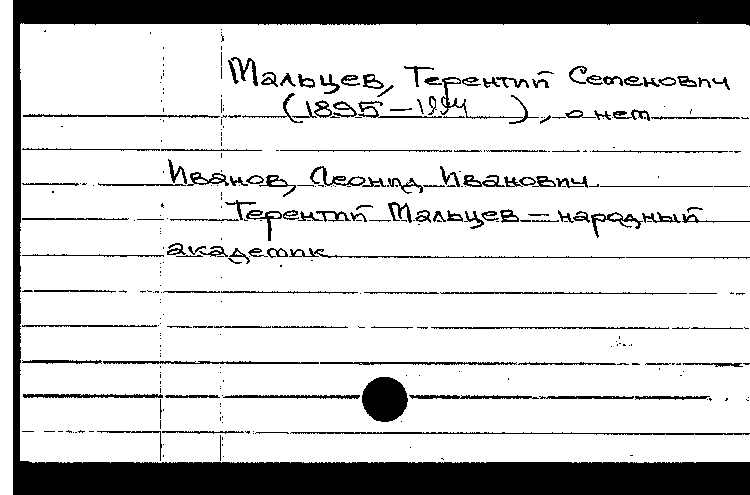 Мальцев, Терентий Семенович
(1895–1994 ), о нем
Иванов, Леонид Иванович
Терентий Мальцев – народный
академик